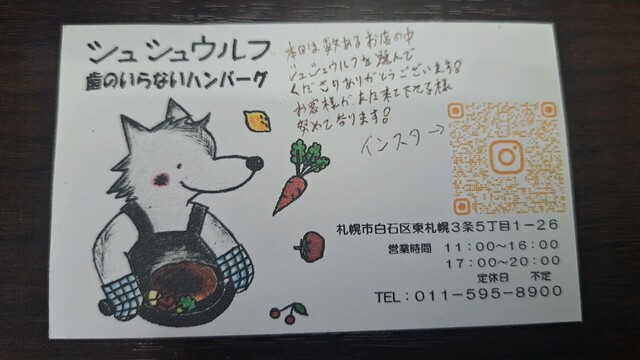 シュシュウルフ
歯のいらないハンバーグ
本日は数あるお店の中
シュシュウルフを選んで
くださりありがとうございます!
お客様がまた来て下さる様
努めて参ります!
インスタ→
札幌市白石区東札幌3条5丁目1-26
営業時間 11:00~16:00
17:00~20:00
定休日 不定
TEL:011-595-8900